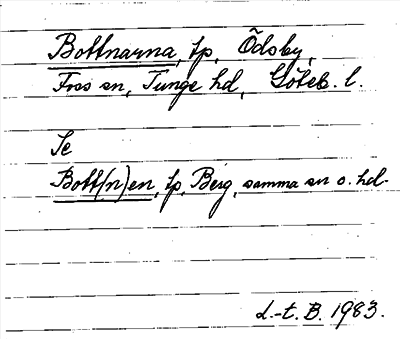 Bottnarna, tp, Ödsby,
Foss sn, Tunge hd, Göteb. l.
Se
Bott(n)en, tp, Berg, samma sn o. hd.
L-t. B. 1983.